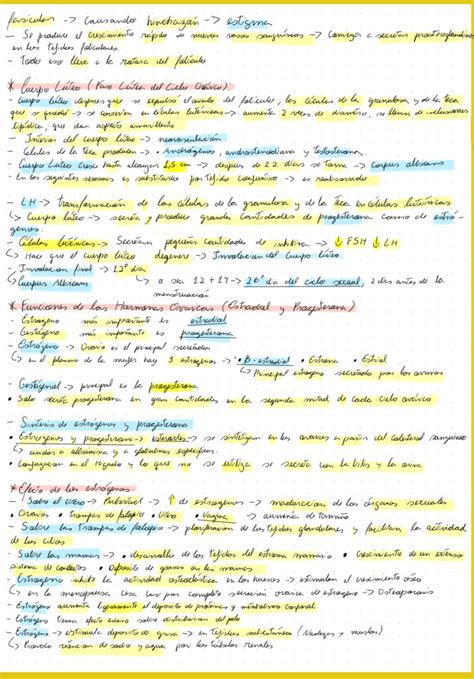 fasicular -> Causando hinchazón -> estigma
- Se produce el crecimiento rápido de nuevos vasos sanguíneos -> Comienza a secretar prostaglandinas
en los tejidos foliculares.
- Todo eso lleva a la rotura del folículo
* Cuerpo Lúteo (Fase Lútea del Ciclo Ovárico)
- Cuerpo lúteo despues que se expulsó el óvulo del folículo, las células de la granulosa y de la teca
que se quedó -> se convierten en Células luteínicas -> aumenta 2 veces de diametro, se llenan de inclusiones
lipídica, que dan aspecto amarillento
- Interior del cuerpo lúteo -> neovasculación
- Células de la teca producen: Andrógenos, androstenodiona y testosterona
- Cuerpo Lúteo Crece hasta alcanzar 1,5 cm -> despues de 22 días se torna -> Corpus albicans
- En las seguintes semanas es substituido por tejido conjuntivo -> es reabsorvido
- LH -> transformación de las Células de la granulosa y de la teca en Células luteínicas
↳ Cuerpo lúteo -> secreta y produce grandes Cantidades de progesterona como de estró-
genos.
- Células luteínicas -> Secretan pequeñas cantidades de inhibina -> ↓ FSH ↓ LH
↳ Hace que el Cuerpo lúteo degenere -> Involucion del Cuerpo lúteo
- Involucion final -> 12º día
↳ Cuerpus Albicans ↳ o sea 12 + 14 -> 26º día del ciclo sexual, 2 días antes de la
menstruación
* Funciones de las Hormonas Ovaricas (Estradiol y Progesterona)
- Estrogeno más importante es estradiol
- Gestágeno más importante es progesterona
- Estrógeno -> Ovario es el principal secretador
↳ en el plasma de la mujer hay 3 estrogenos -> • β-estradiol • Estrona • Estriol
↳ Principal estrogeno secretado por los ovarios
- Gestágenos -> principal es la progesterona
• Solo secreta progesterona en gran cantidades en la segunda mitad de cada ciclo ovárico
- Sintesis de estrógenos y progesterona
• Estrogenos y progesterona -> esteroides -> se sintetizan en los ovarios a partir del Colesterol sanguineo
↳ unidos a albumina y a globulinas específicas.
• Conjugacion en el Higado y lo que no se utiliza se secreta con la bilis y la orina
* Efecto de los estrógenos
- Sobre el Utero -> Pubertad -> ↑ de estrogenos -> maduracion de los órganos sexuales
• Ovarios • trompas de falopio • Utero • Vagina -> aumenta de tamaño
- Sobre las trompas de falopio -> proliferación de los tejidos glandulares y facilitan la actividad
de los cilios
- Sobre las mamas -> • desarrollo de los tejidos del estroma mamario • Crecimiento de un extenso
sistema de conductos • Deposito de grasas en las mamas
- Estrogeno inhibe la actividad osteoclástica en los huesos -> estimulan el crecimiento óseo
↳ en la menopausa cesa casi por completo secreción ovarica de estrogeno -> Osteoporosis
- Estrógeno aumenta ligeramente el deposito de proteínas y metabolismo corporal
- Estrógeno tienen efecto escaso sobre distribucion del pelo
- Estrógeno -> estimula deposito de grasa -> en tejidos subcutáneos (Nadegas y muslos)
↳ Provoca retencion de sodio y agua por los túbulos renales